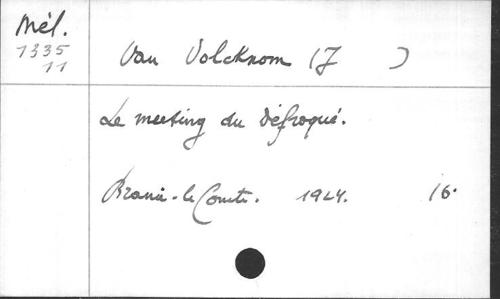 Mél.
1335
11
Van Volcknom (J )
Le meeting du défroqué.
Braine-le Comte. 1924. 16°